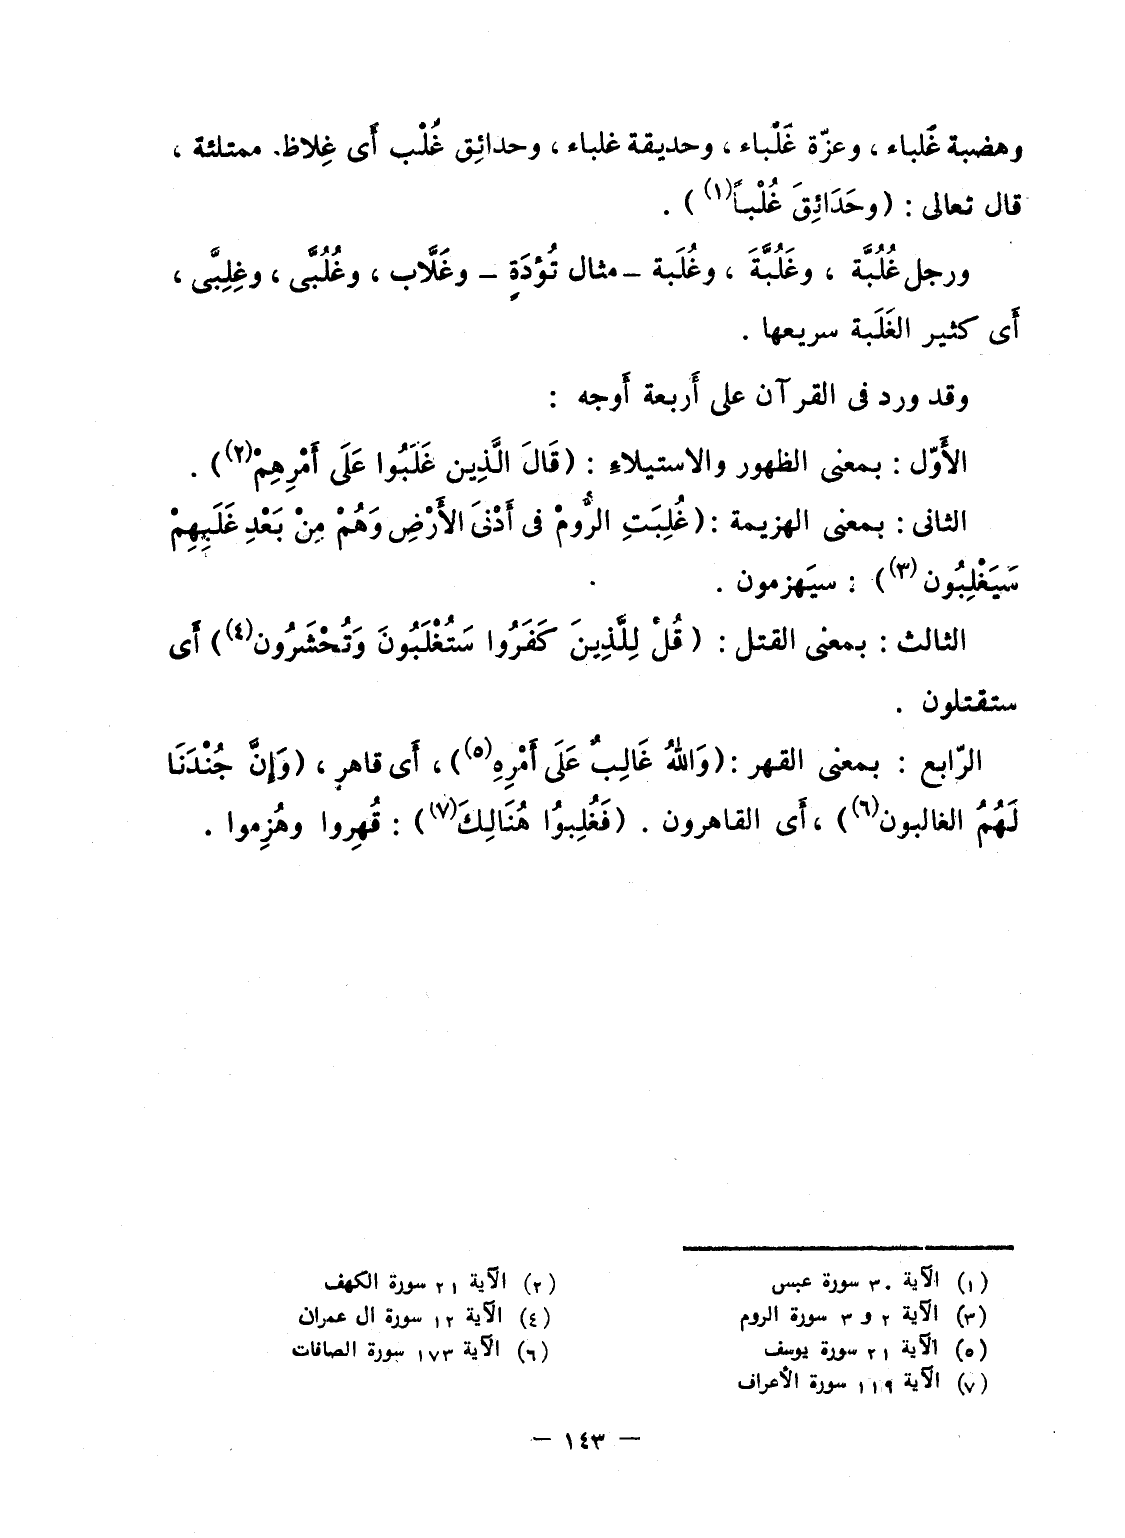 وهضبة غَلباء ، وعزّة غَلْباء ، وحديقة غلباء ، وحدائِق غُلْب أَى غِلاظ. ممتلئة ،
قال تعالى : (وحَدَائِقَ غُلْباً(١)) .
ورجل غُلُبَّة ، وغَلُبَّةَ ، وغُلَبة – مثال تُؤدَةٍ – وغَلَّاب ، وغُلُبَّى ، وغِلِبَّى ،
أَى كثير الغَلَبة سريعها .
وقد ورد فى القرآن على أَربعة أَوجه :
الأَوّل : بمعنى الظهور والاستيلاءِ : (قَالَ الَّذِين غَلَبُوا عَلَى أَمْرِهِمْ(٢)) .
الثانى : بمعنى الهزيمة : (غُلِبَتِ الرُّومُ فى أَدْنىَ الأَرْضِ وَهُمْ مِنْ بَعْدِ غَلَبِهِمْ
سَيَغْلِبُون(٣)) : سيَهزمون .
الثالث : بمعنى القتل : (قُلْ لِلَّذِينَ كَفَرُوا سَتُغْلَبُونَ وَتُحْشَرُون(٤)) أَى
ستقتلون .
الرّابع : بمعنى القهر : (وَاللهُ غَالِبٌ عَلَى أَمْرِهِ(٥)) ، أَى قاهرٍ ، (وَإِنَّ جُنْدَنَا
لَهُمُ الغالبون(٦)) ، أَى القاهرون . (فَغُلِبوُا هُنَالِكَ(٧)) : قُهِروا وهُزِموا .
(١) الآية ٣٠ سورة عبس
(٢) الآية ٢١ سورة الكهف
(٣) الآية ٢ و ٣ سورة الروم
(٤) الآية ١٢ سورة ال عمران
(٥) الآية ٢١ سورة يوسف
(٦) الآية ١٧٣ سورة الصافات
(٧) الآية ١١٩ سورة الأعراف
– ١٤٣ –